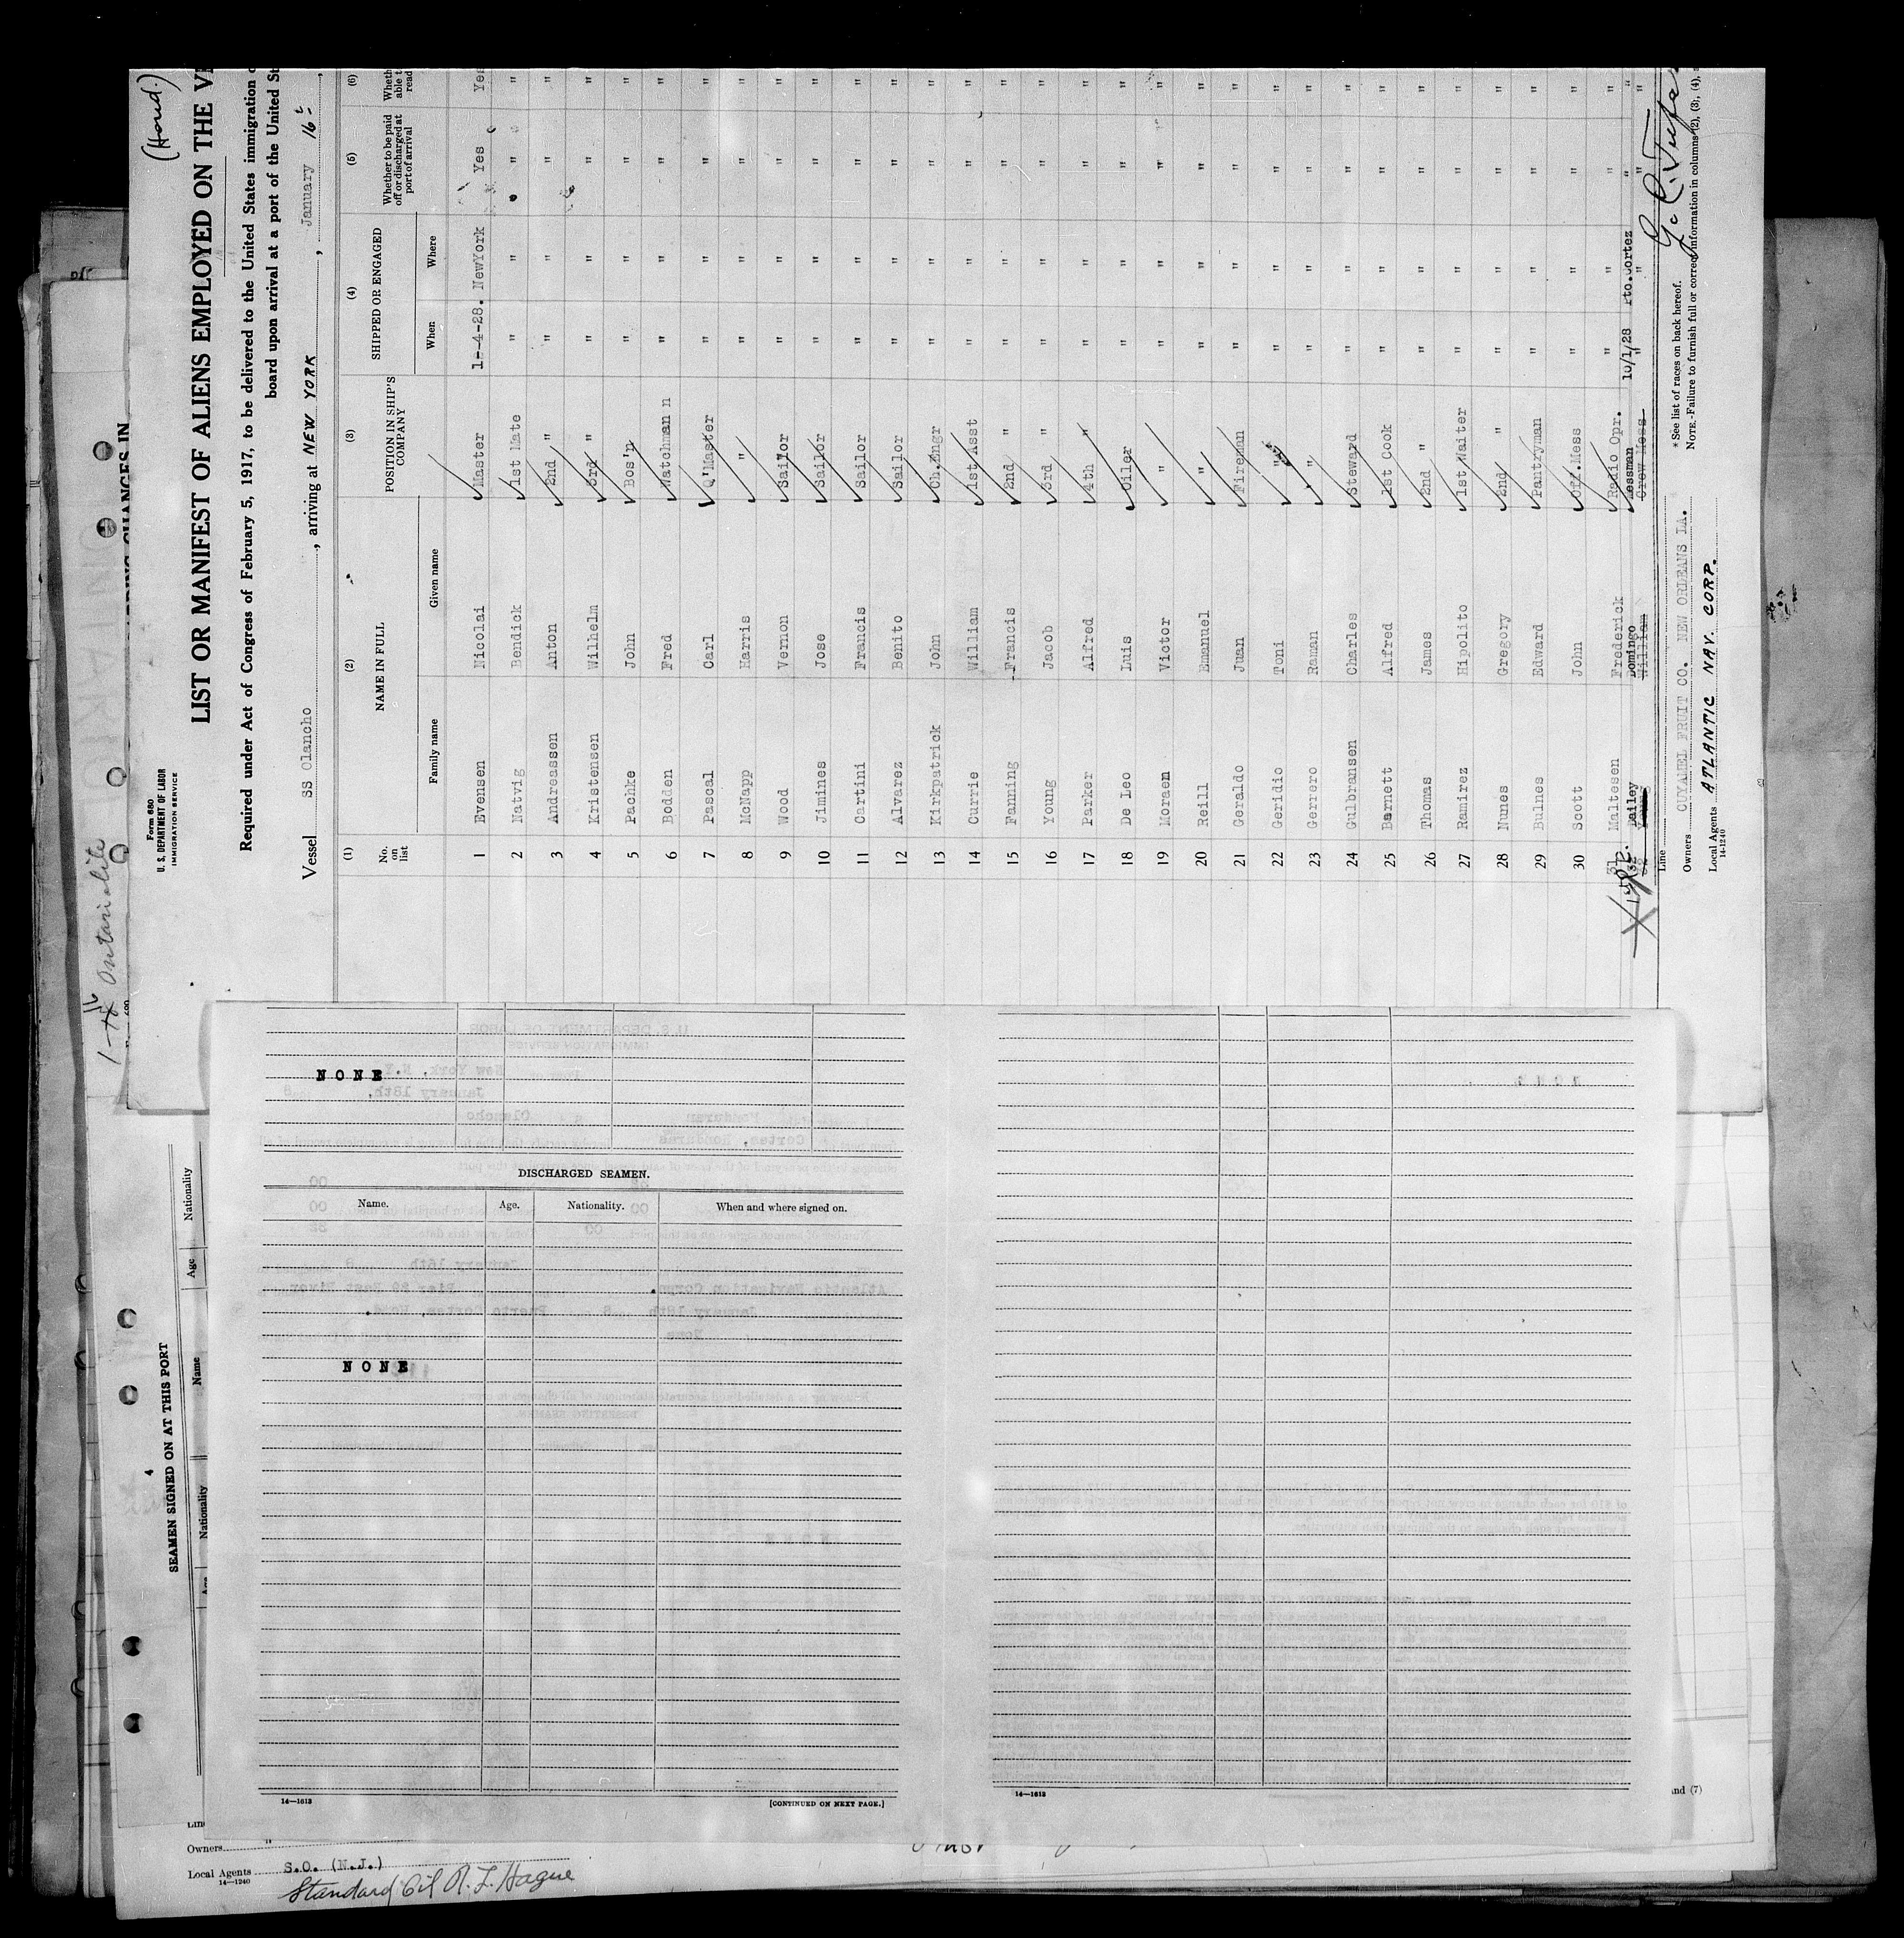 (Hond.)
Form 680
U. S. DEPARTMENT OF LABOR
IMMIGRATION SERVICE
LIST OR MANIFEST OF ALIENS EMPLOYED ON THE
Required under Act of Congress of February 5, 1917, to be delivered to the United States immigration
board upon arrival at a port of the United
Vessel SS Olancho, arriving at NEW YORK, January 16
(1) (2) (3) (4) (5) (6)
No. on list NAME IN FULL POSITION IN SHIP'S COMPANY SHIPPED OR ENGAGED Whether to be paid off or discharged at port of arrival
Family name Given name When Where
1 Evensen Nicolai Master 1-4-28. NewYork Yes Yes
2 Natvig Bendick 1st Mate " " " "
3 Andreassen Anton 2nd " " " " "
4 Kristensen Wilhelm 3rd " " " " "
5 Pachke John Bos'n " " " "
6 Bodden Fred Watchman n " " " "
7 Pascal Carl Q'Master " " " "
8 McNapp Harris " " " " "
9 Wood Vernon Sailor " " " "
10 Jimines Jose Sailor " " " "
11 Cartini Francis Sailor " " " "
12 Alvarez Benito Sailor " " " "
13 Kirkpatrick John Ch.Engr " " " "
14 Currie William 1st Asst " " " "
15 Fanning Francis 2nd " " " " "
16 Young Jacob 3rd " " " " "
17 Parker Alfred 4th " " " " "
18 De Leo Luis Oiler " " " "
19 Moraen Victor " " " " "
20 Reill Emanuel " " " " "
21 Geraldo Juan Fireman " " " "
22 Geridio Toni " " " " "
23 Gerrero Raman " " " " "
24 Gulbransen Charles Steward " " " "
25 Barnett Alfred 1st Cook " " " "
26 Thomas James 2nd " " " " "
27 Ramirez Hipolito 1st Waiter " " " "
28 Nunes Gregory 2nd " " " " "
29 Bulnes Edward Pantryman " " " "
30 Scott John Off.Mess " " " "
31 Maltesen Frederick Radio Opr. " " " "
32 Dailey Domingo Messman 10/1/28 Pto.Cortez " "
William Crew Mess " " " "
Line
Owners CUYAMEL FRUIT CO. NEW ORLEANS LA.
Local Agents ATLANTIC NAV. CORP.
14-1240
* See list of races on back hereof.
NOTE.-Failure to furnish full or correct information in columns (2), (3), (4),
NONE
DISCHARGED SEAMEN.
Name. Age. Nationality. When and where signed on.
NONE
14—1613
[CONTINUED ON NEXT PAGE.]
14—1613
4
SEAMEN SIGNED ON AT THIS PORT
Name Age Nationality
Nationality
and (7)
Owners "
Local Agents S.O. (N.J.)
14—1240
Standard Oil R. L. Hague